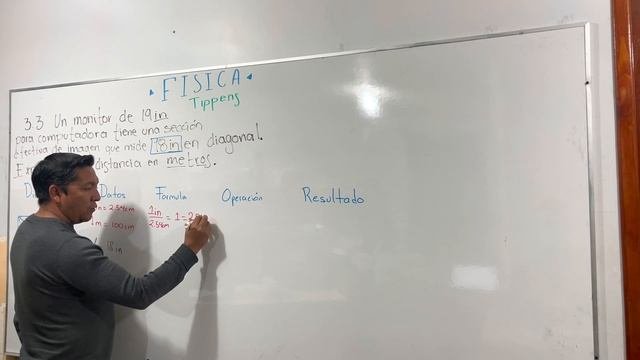 FISICA
Tippens
3.3 Un monitor de 19 in
para computadora tiene una sección
efectiva de imagen que mide 18 in en diagonal.
distancia en metros.
Datos Formula Operación Resultado
1in / 2.54cm = 1 =
1m = 100cm
18 in